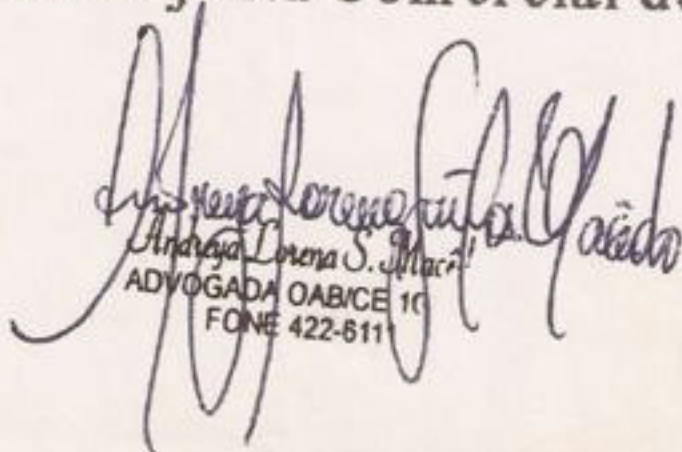 Comercial
Andreya Lorena S. Macêdo
Andreya Lorena S. Macê
ADVOGADA OAB/CE 10
FONE 422-6111